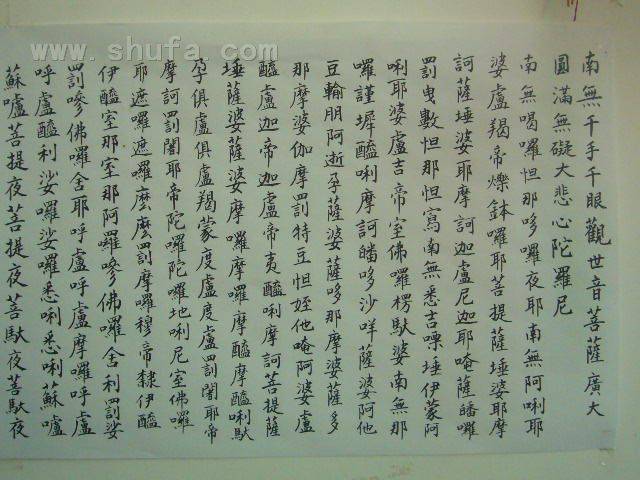 南無千手千眼觀世音菩薩廣大
圓滿無礙大悲心陀羅尼
南無喝囉怛那哆囉夜耶南無阿唎耶
婆盧羯帝爍鉢囉耶菩提薩埵婆耶摩
訶薩埵婆耶摩訶迦盧尼迦耶唵薩皤囉
罰曳數怛那怛寫南無悉吉嘌埵伊蒙阿
唎耶婆盧吉帝室佛囉楞馱婆南無那
囉謹墀醯唎摩訶皤哆沙咩薩婆阿他
豆輸朋阿逝孕薩婆薩哆那摩婆薩多
那摩婆伽摩罰特豆怛姪他唵阿婆盧
醯盧迦帝迦盧帝夷醯唎摩訶菩提薩
埵薩婆薩婆摩囉摩囉摩醯摩醯唎馱
孕俱盧俱盧羯蒙度盧度盧罰闍耶帝
摩訶罰闍耶帝陀囉陀囉地唎尼室佛囉
耶遮囉遮囉麼麼罰摩囉穆帝隸伊醯
伊醯室那室那阿囉嘇佛囉舍利罰娑
罰嘇佛囉舍耶呼盧呼盧摩囉呼盧
呼盧醯利娑囉娑囉悉唎悉唎蘇嚧
蘇嚧菩提夜菩提夜菩馱夜菩馱夜
www.shufa.com